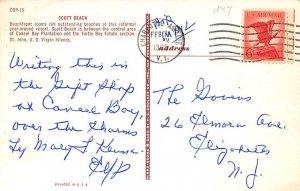 CBP-15
SCOTT BEACH
Beachfront rooms rim outstanding beaches at this informal
year-around resort. Scott Beach is between the central area
of Caneel Bay Plantation and the Turtle Bay Estate section.
St. John, U. S. Virgin Islands.
Writing this in
the Gift Shop
at Caneel Bay,
over the
by Mary
PRINTED IN U.S.A.
FEB
V. I.
address
U.S. AIR MAIL
The Govins
26 Elmora Ave,
Elizabeth
N. J.